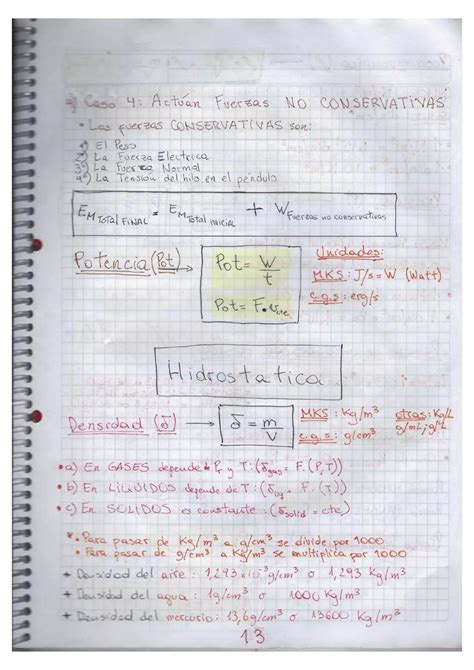 Caso 4: Actúan Fuerzas NO CONSERVATIVAS
• Las fuerzas CONSERVATIVAS son:
1º) El Peso
2º) La Fuerza Electrica
3º) La Fuerza Normal
4º) La Tensión del hilo en el péndulo
E M Total FINAL = E M Total INICIAL + W Fuerzas no conservativas
Potencia (Pot) → Pot = W/t
Pot = F.v
Unidades:
MKS: J/s = W (Watt)
c.g.s: erg/s
Hidrostatica
Densidad (δ) → δ = m/V
MKS: Kg/m³
c.g.s: g/cm³
otras: Kg/L
g/mL; g/L
• a) En GASES depende de P y T: (δgas = F.(P,T))
• b) En LÍQUIDOS depende de T: (δliq = F.(T))
• c) En SOLIDOS es constante: (δsolid = cte)
*• Para pasar de Kg/m³ a g/cm³ se divide por 1000
• Para pasar de g/cm³ a Kg/m³ se multiplica por 1000
+ Densidad del aire: 1,293x10⁻³ g/cm³ o 1,293 Kg/m³
+ Densidad del agua: 1g/cm³ o 1000 Kg/m³
+ Densidad del mercurio: 13,6g/cm³ o 13600 Kg/m³
13